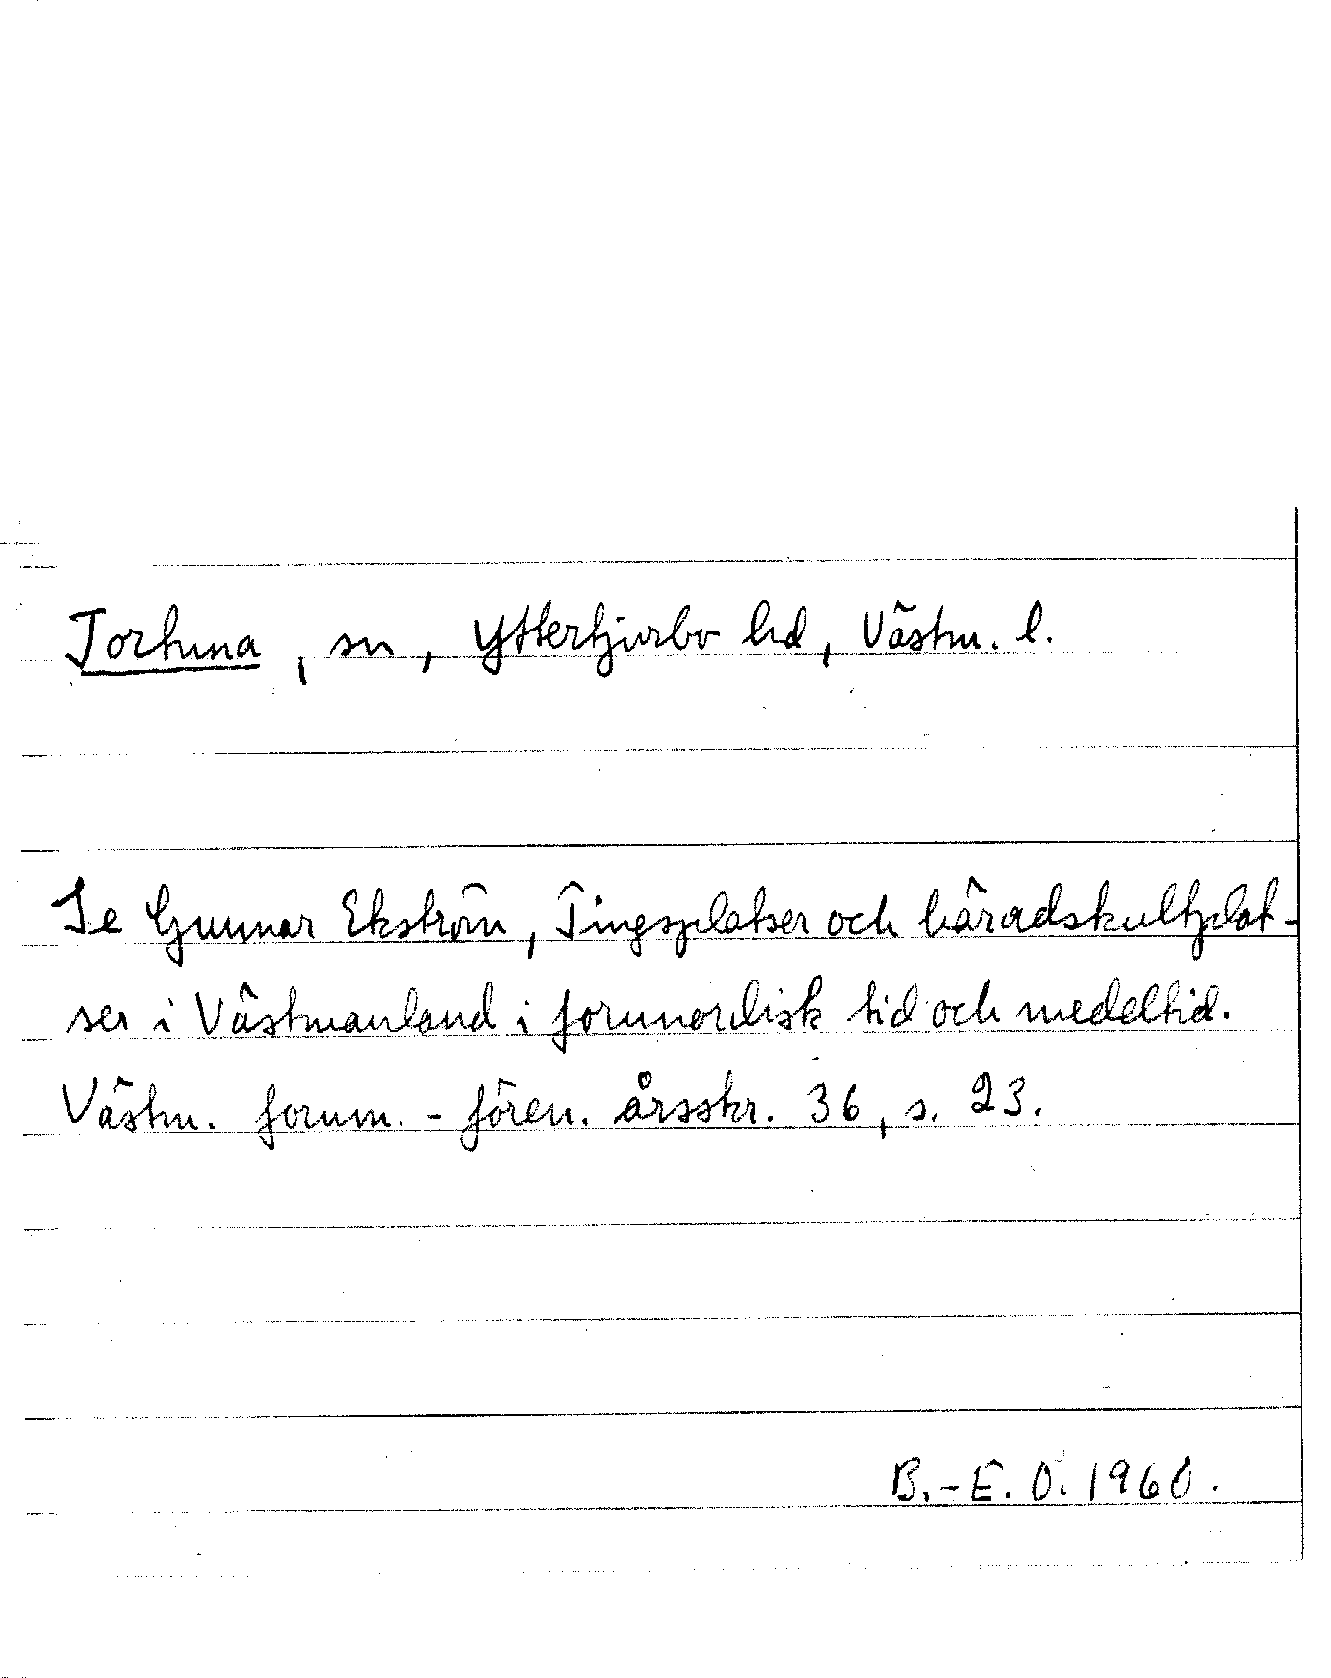 Tortuna, sn, Yttertjurbo hd, Västm. l.
Se Gunnar Ekström, Tingsplatser och häradskultplat-
ser i Västmanland i fornnordisk tid och medeltid.
Västm. fornm.-fören. årsskr. 36, s. 23.
B.-E. O. 1960.